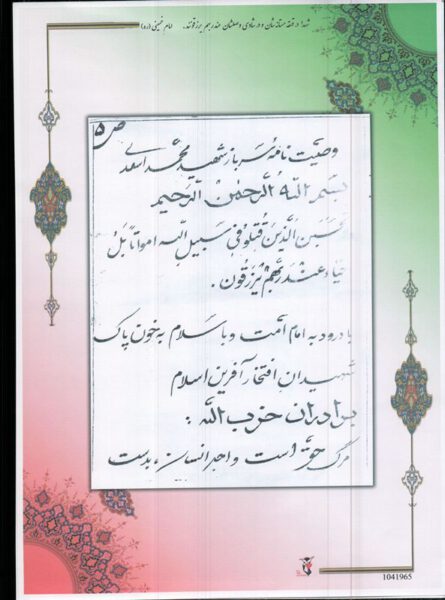 شهدا در قهقهه مستانه‌شان و در شادی وصلشان عند ربهم یرزقونند. امام خمینی (ره)
ص ۵
وصیت نامه سرباز شهید محمد اسعدی
بسم الله الرحمن الرحیم
تحسبن الذین قتلو فی سبیل الله امواتا بل
حیاء عند ربهم یرزقون.
با درود به امام امت و با سلام به خون پاک
شهیدان افتخار آفرین اسلام
برادران حزب الله :
مرگ حق است و اجر انسان، بدست
1041965